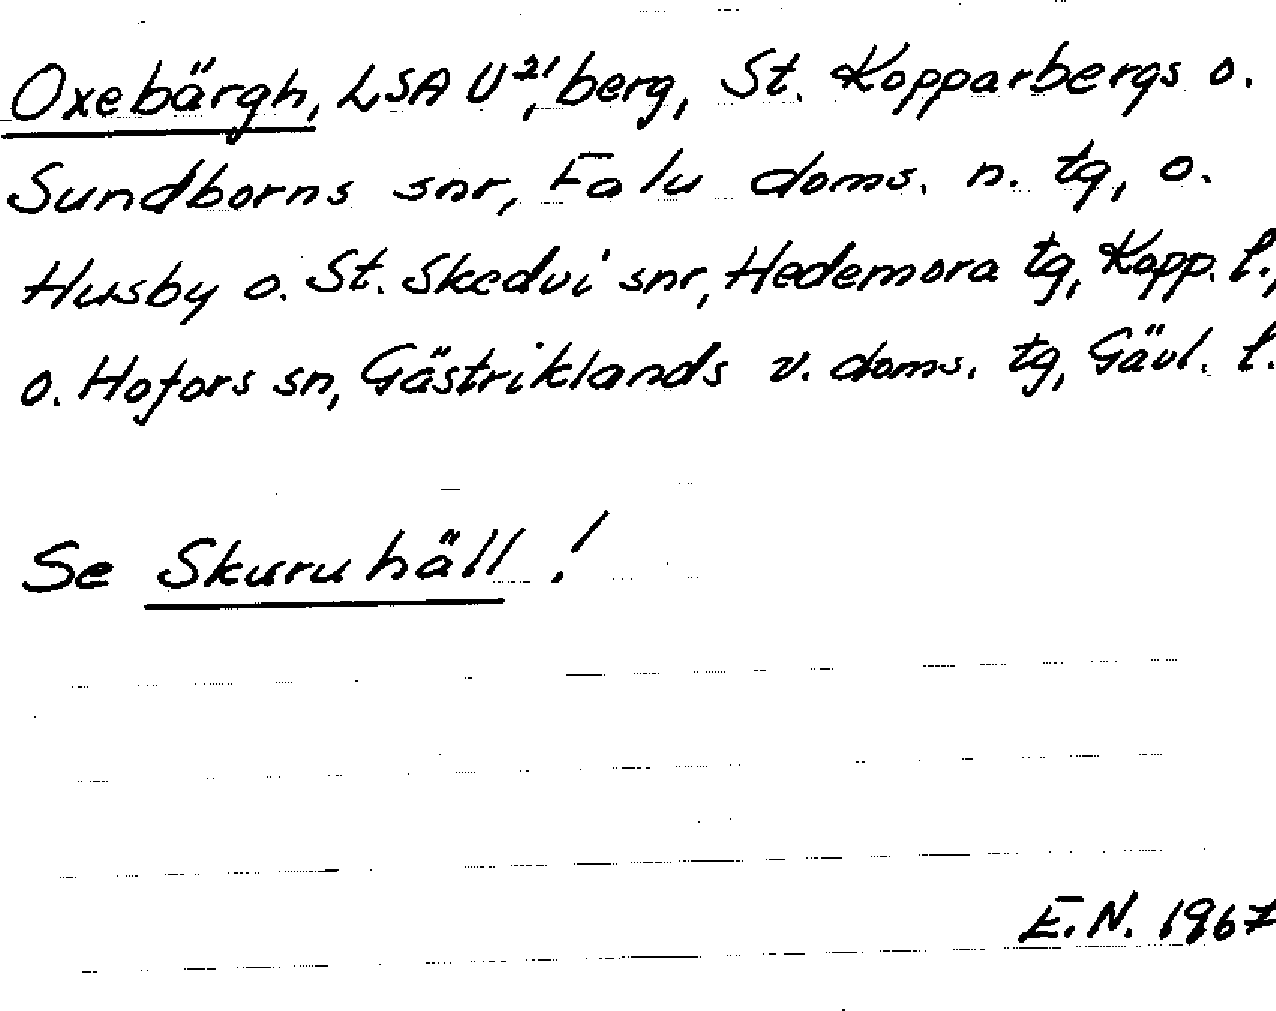 Oxebärgh, LSA U²¹, berg, St. Kopparbergs o.
Sundborns snr, Falu doms. n. tg, o.
Husby o. St. Skedvi snr, Hedemora tg, Kopp. l.,
o. Hofors sn, Gästriklands v. doms. tg, Gävl. l.
Se Skuruhäll!
E.N. 1967